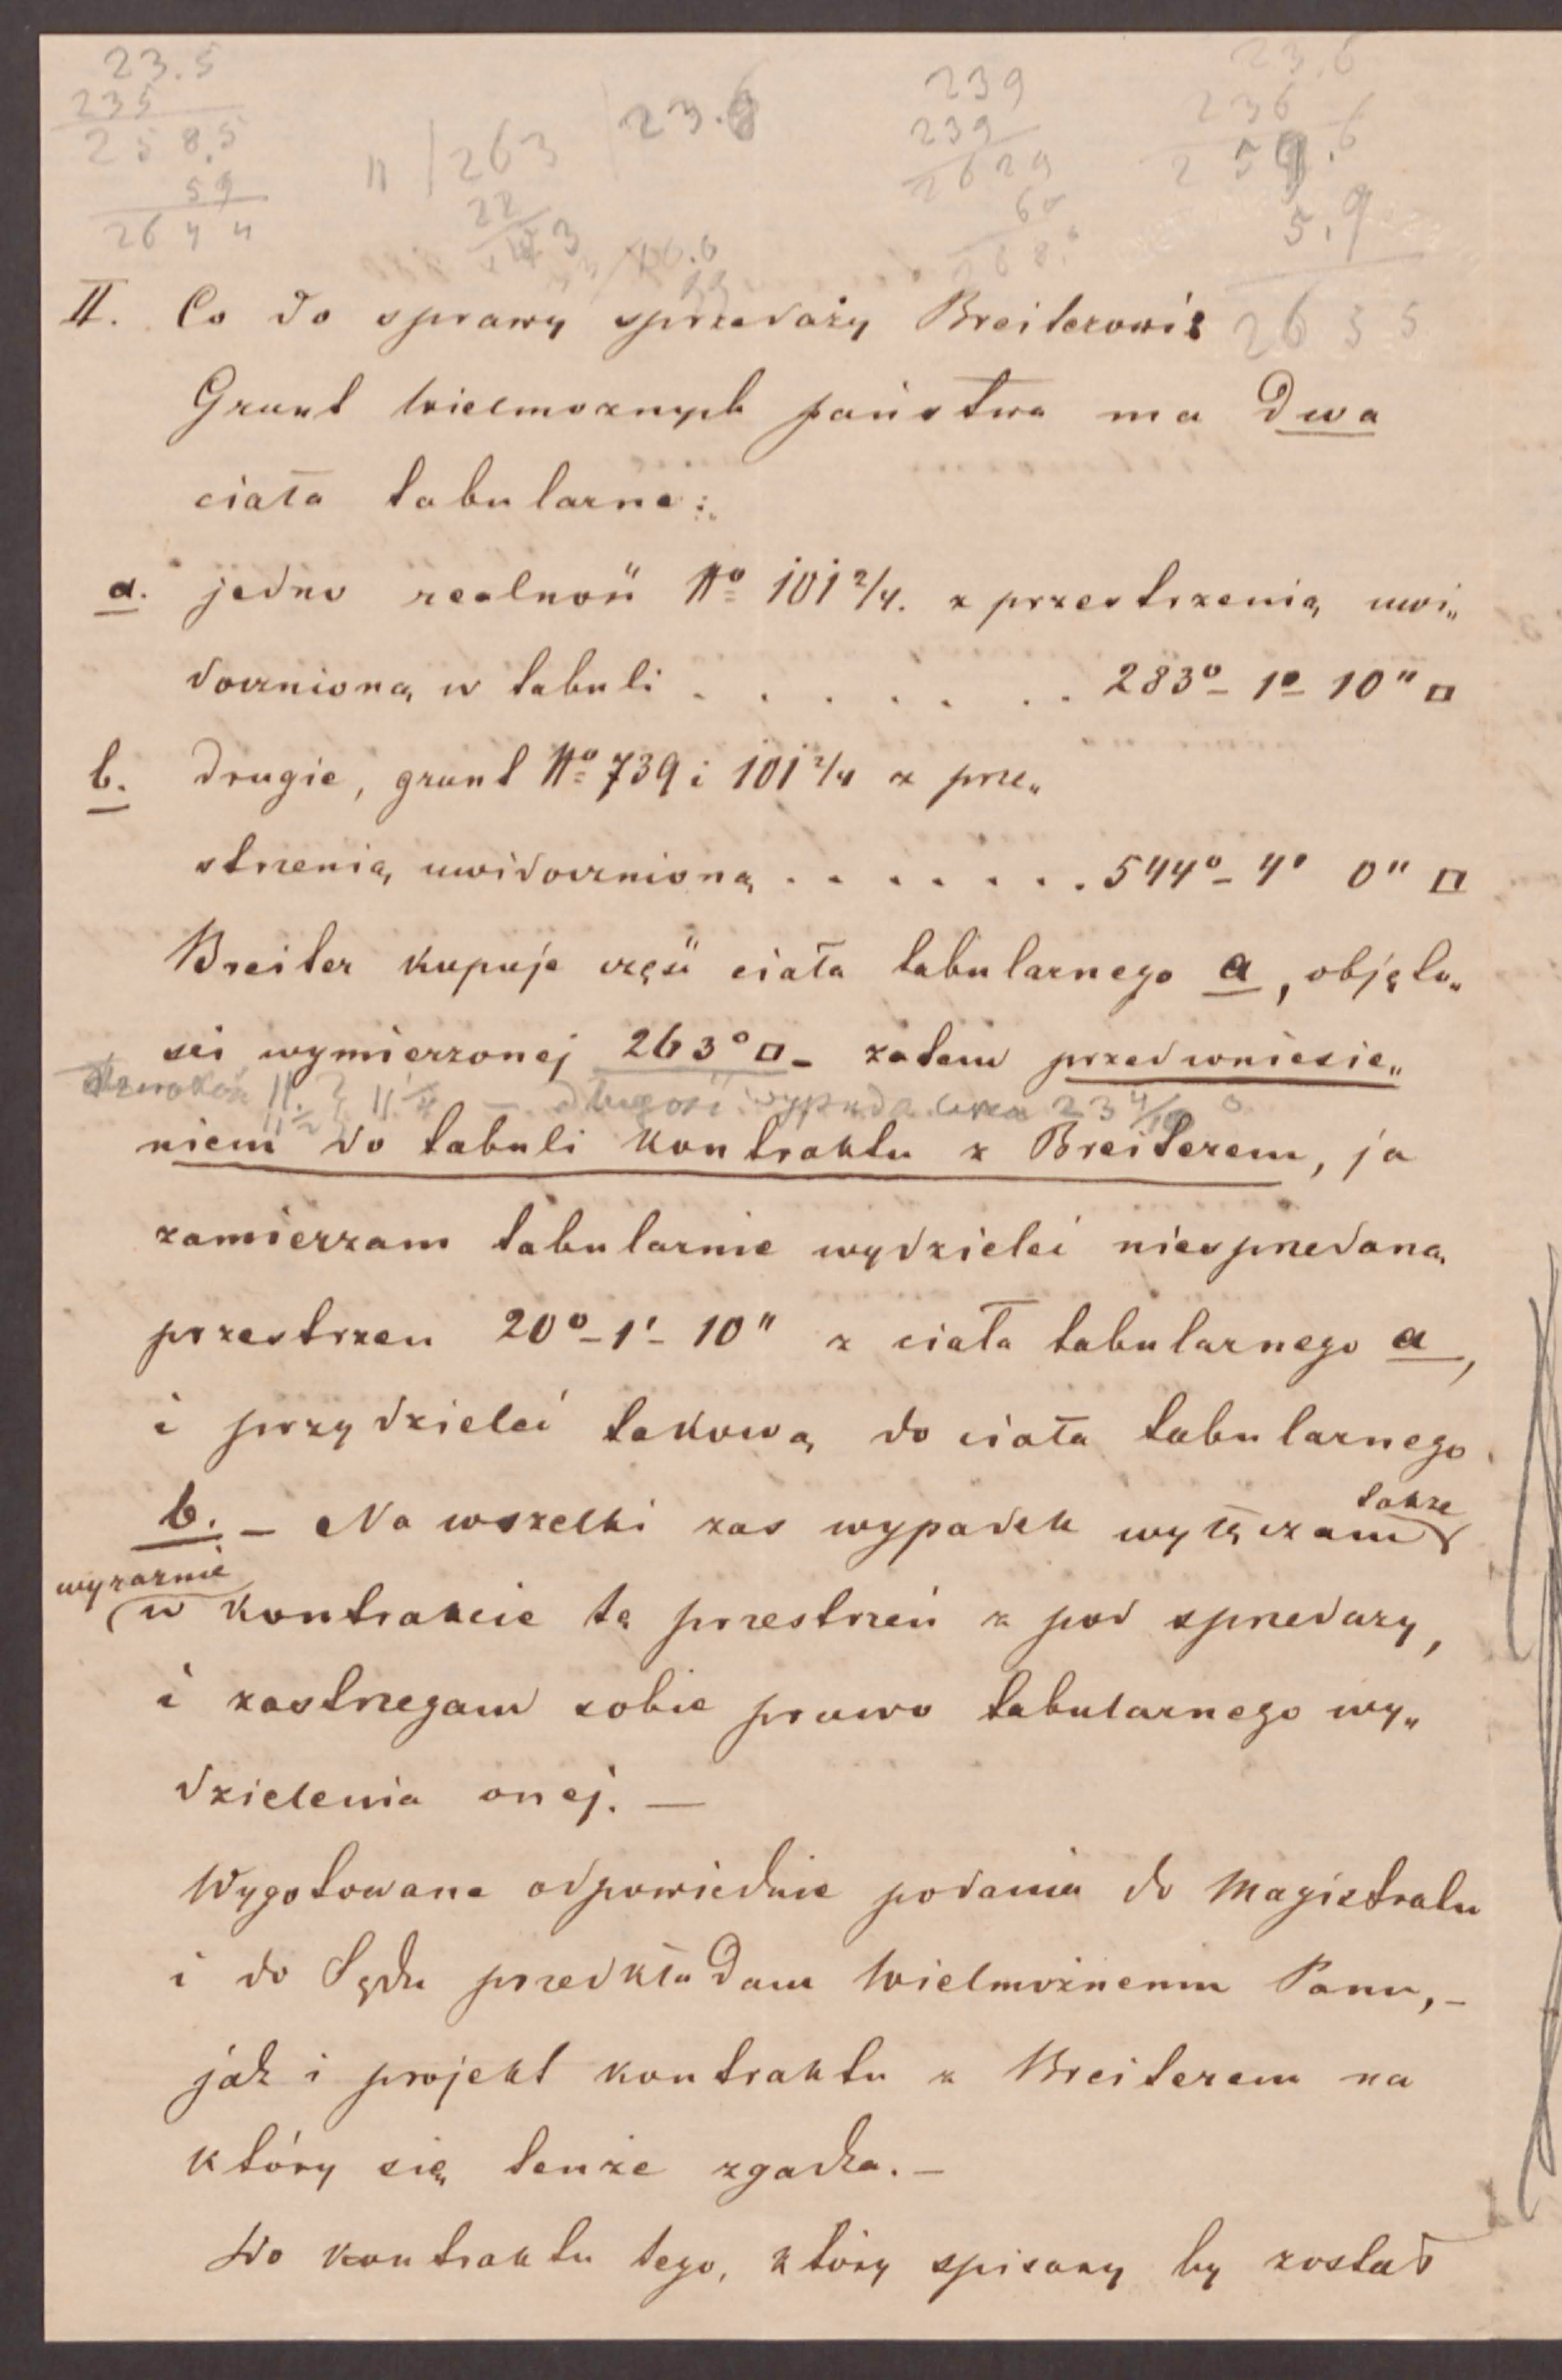 23.5
235
258.5
59
2644
11 | 263
22
23.6
239
239
2629
23.6
236
259.6
5.9
2655
II. Co do sprawy sprzedaży Breiterowi:
Grunt Wielmożnych państwa ma dwa
ciała tabularne:
a. jedno realność No 101 2/4. z przestrzenią uwi„
docznioną w tabuli . . . . . . . 283° - 1° - 10" □
b. drugie, grunt No 739 i 101 2/4 z prze„
strzenią uwidocznioną . . . . . . . 544° - 4' 0" □
Breiter kupuje część ciała tabularnego a, objęto„
ści wymierzonej 263° □ - zatem przed wniesie„
długość wypada 23 4/10
niem do tabuli kontraktu z Breiterem, ja
zamierzam tabularnie wydzielić niesprzedaną
przestrzeń 20° - 1' - 10" z ciała tabularnego a,
i przydzielić takową do ciała tabularnego
b. - Na wszelki zaś wypadek wyłączam także
wyraźnie w kontrakcie tę przestrzeń z pod sprzedaży,
i zastrzegam sobie prawo tabularnego wy„
dzielenia onej. —
Wygotowane odpowiednie podania do Magistratu
i do Sądu przedkładam Wielmożnemu Panu, -
jak i projekt kontraktu z Breiterem na
który się tenże zgadza. -
Do kontraktu tego, który spisany by został